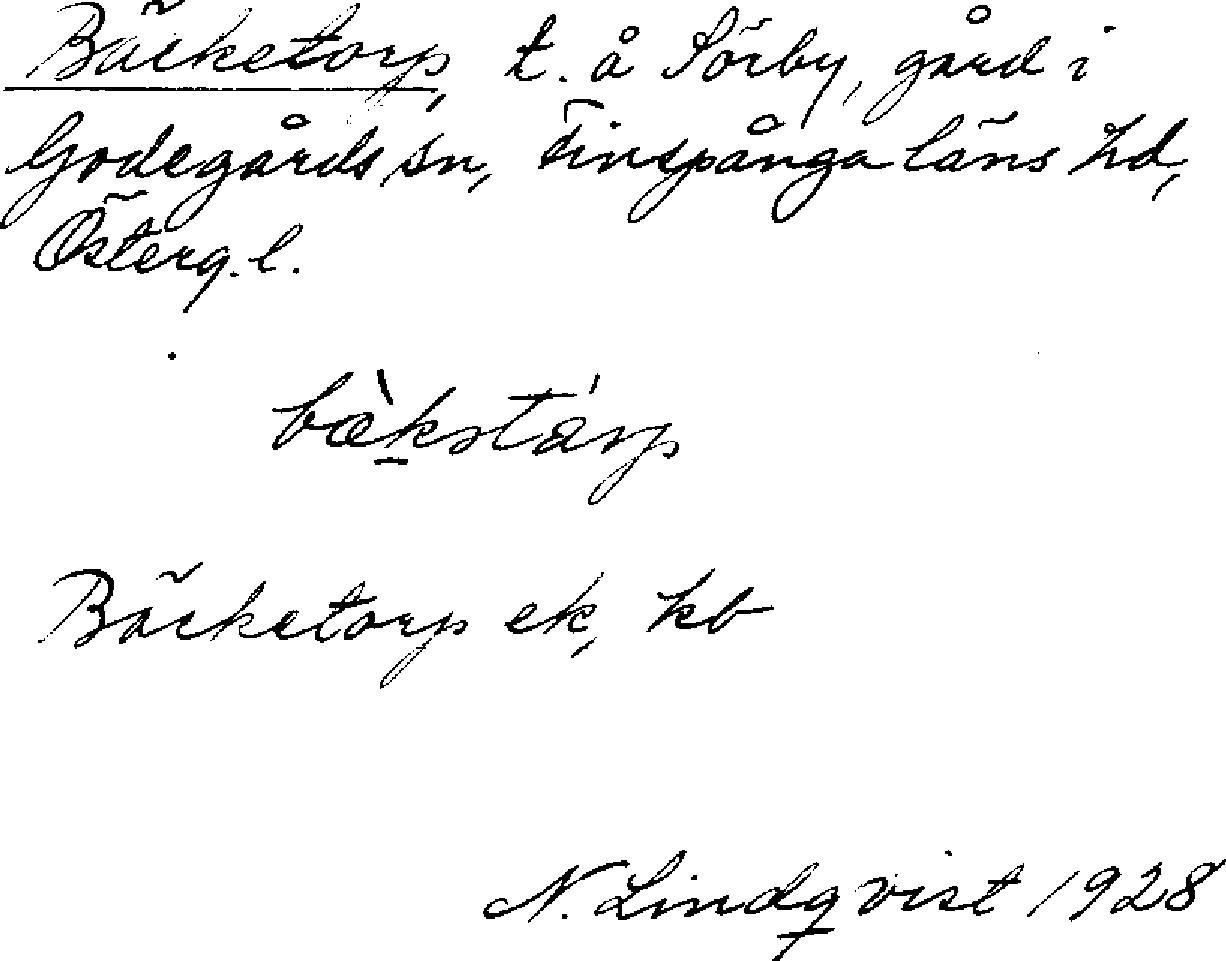 Bäcketorp, t. å Sörby, gård i
Godegårds sn, Finspånga läns hd,
Österg. l.
bæ̀kstárp
Bäcketorp ek, kb
N. Lindqvist 1928